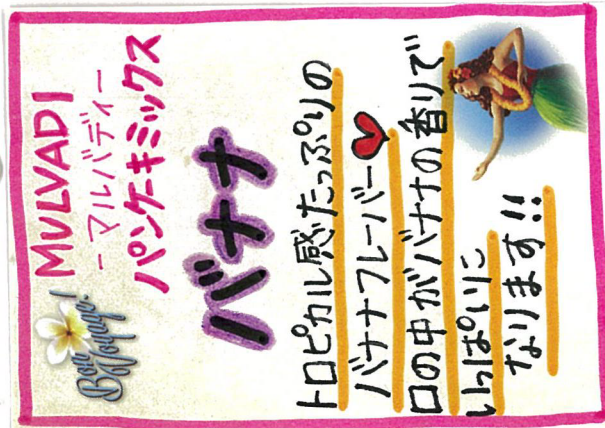 Bon Voyage!
MULVADI
-マルバディー-
パンケーキミックス
バナナ
トロピカル感たっぷりの
バナナフレーバー♥
口の中がバナナの香りで
いっぱいに
なります!!